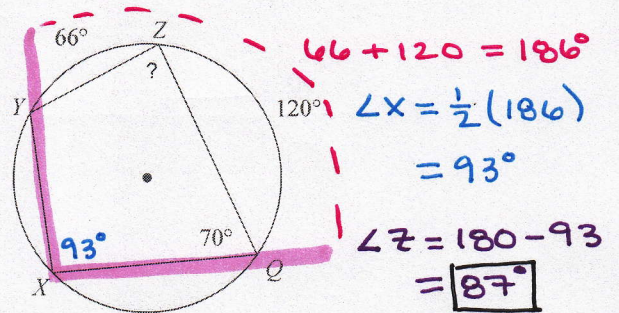 66°
Z
?
Y
120°
93°
70°
X
Q
66 + 120 = 186°
∠X = ½(186)
= 93°
∠Z = 180 - 93
= 87°